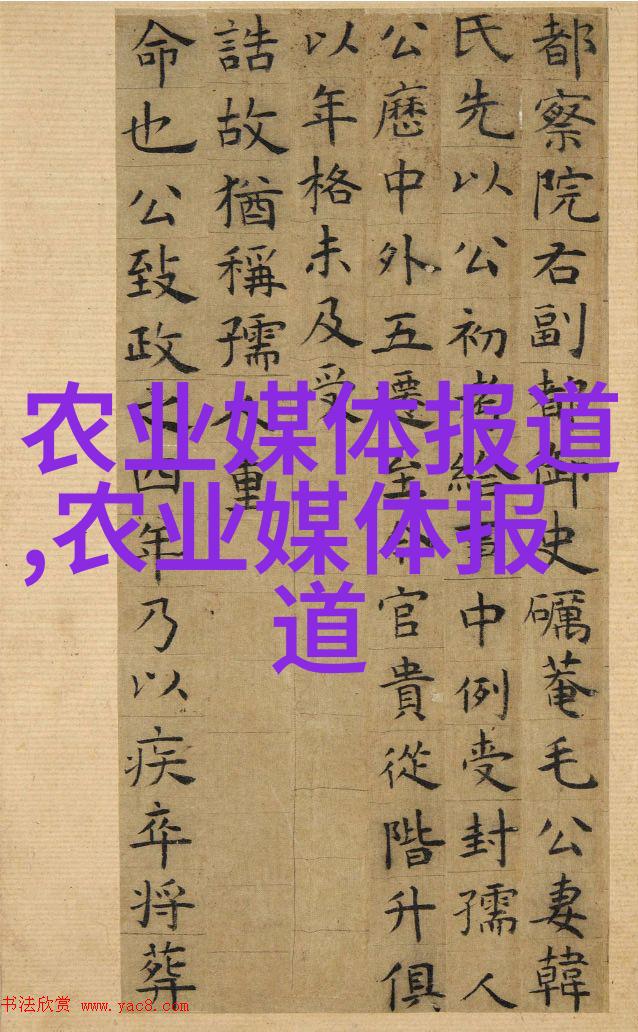 都察院右副都御史礪菴毛公妻韓
氏先以公初考給事中例受封孺人
公歷中外五遷至今官貴從階升俱
以年格未及受
誥故猶稱孺人重
命也公致政之四年乃以疾卒将葬
农业媒体报道
,农业媒体报
道
书法欣赏 www.yac8.com